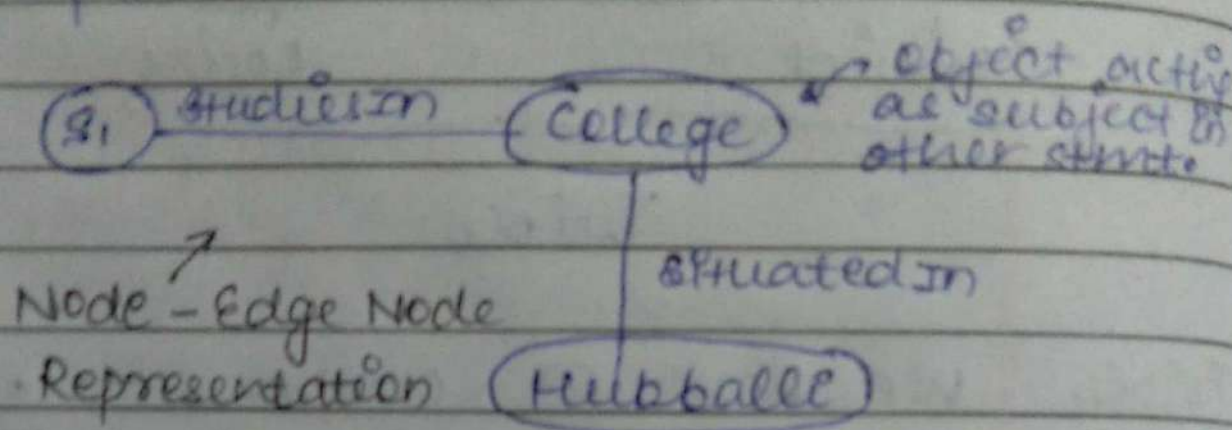 S1 StudiesIn College
object acting
as subject in
other stmt.
SituatedIn
Node - Edge Node
Representation
Hubballi